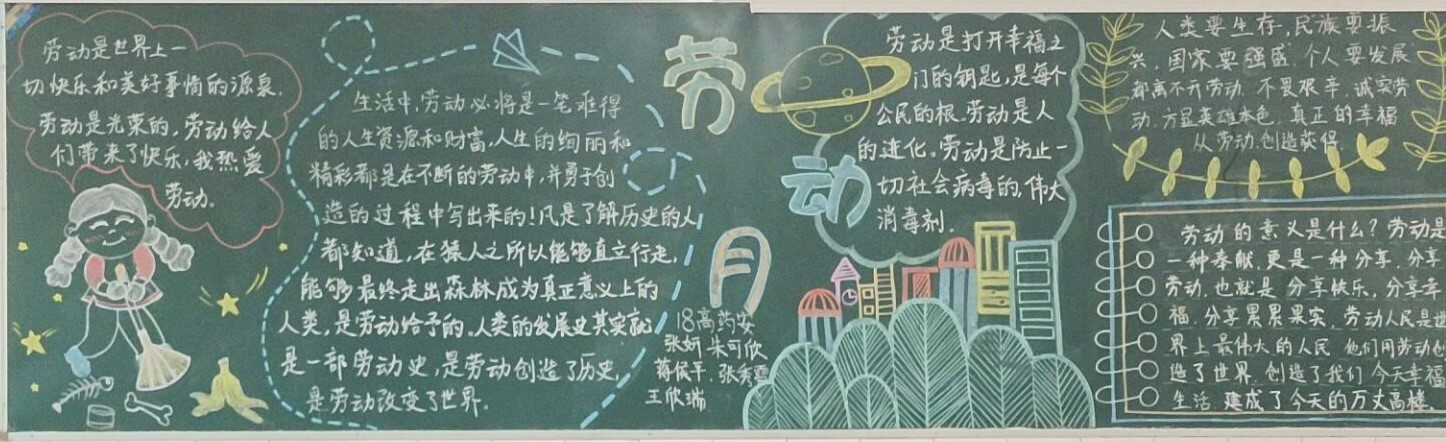 劳动是世界上一
切快乐和美好事情的源泉.
劳动是光荣的,劳动给人
们带来了快乐,我热爱
劳动。
生活中,劳动必将是一笔难得
的人生资源和财富,人生的绚丽和
精彩都是在不断的劳动中,并勇于创
造的过程中写出来的!凡是了解历史的人
都知道,在猿人之所以能够直立行走,
能够最终走出森林成为真正意义上的
人类,是劳动给予的。人类的发展史其实就
是一部劳动史,是劳动创造了历史,
是劳动改变了世界。
劳
动
月
18高药安
张妍 朱可欣
蒋侯平.张秀
王欣瑞
劳动是打开幸福之
门的钥匙,是每个
公民的根.劳动是人
的进化。劳动是防止一
切社会病毒的,伟大
消毒剂.
人类要生存,民族要振
兴,国家要强盛,个人要发展
都离不开劳动.不畏艰辛,诚实劳
动,方显英雄本色.真正的幸福
从劳动.创造获得.
劳动的意义是什么?劳动是
一种奉献,更是一种分享,分享
劳动,也就是分享快乐,分享幸
福,分享累累果实,劳动人民是世
界上最伟大的人民 他们用劳动创
造了世界,创造了我们今天幸福
生活.建成了今天的万丈高楼.